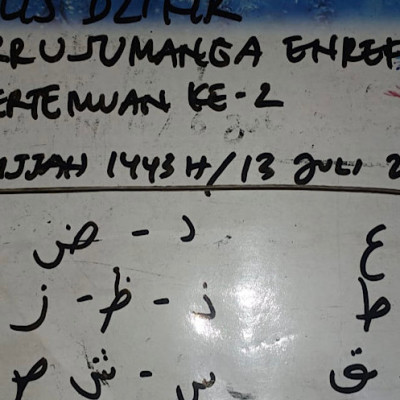 US DZIKR
RRUJUMANGA ENREK
ERTEMUAN KE-2
IJJAH 1443 H/13 JULI 2
ع د - ض
ط ذ - ظ - ز
ق س - ش ص